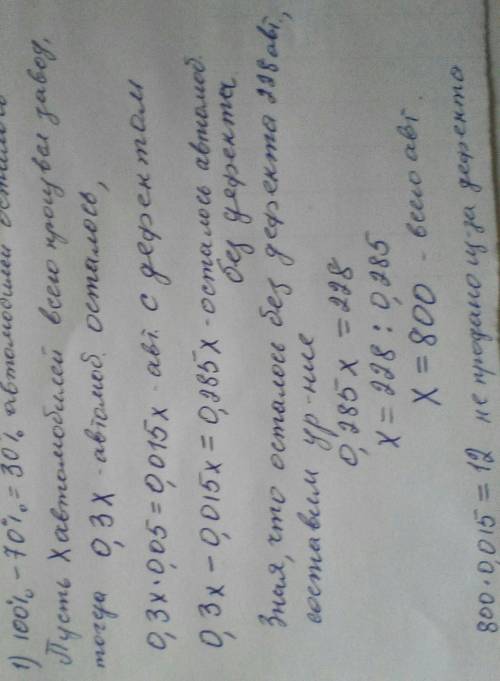 1) 100% - 70% = 30% автомобили осталось
Пусть X автомобилей всего произвел завод,
тогда 0,3X - автомоб. осталось,
0,3x · 0,05 = 0,015x - авт. с дефектом
0,3x - 0,015x = 0,285x - осталось автомоб.
без дефекта.
Зная, что осталось без дефекта 228 авт.,
составим ур-ние
0,285x = 228
x = 228 : 0,285
x = 800 - всего авт.
800 · 0,015 = 12 не продано из-за дефекта